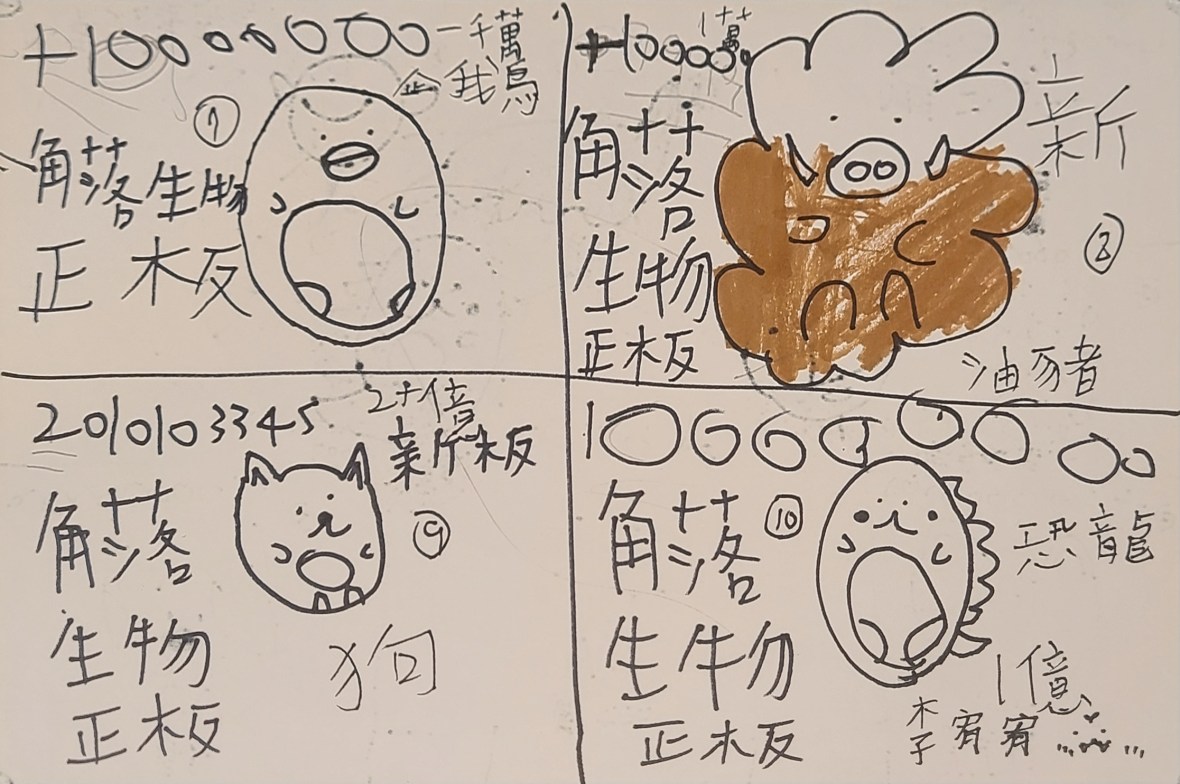 +10000000 一千萬
企我鳥
⑦
角落生物
正木反
+10000 1萬
新
角落
生物
正木反
②
油豬
201010 3345 2十億
新板
角落
⑨
生物
狗
正板
100000000
角落
⑩
恐龍
生物
正木反
1億
李宥宥